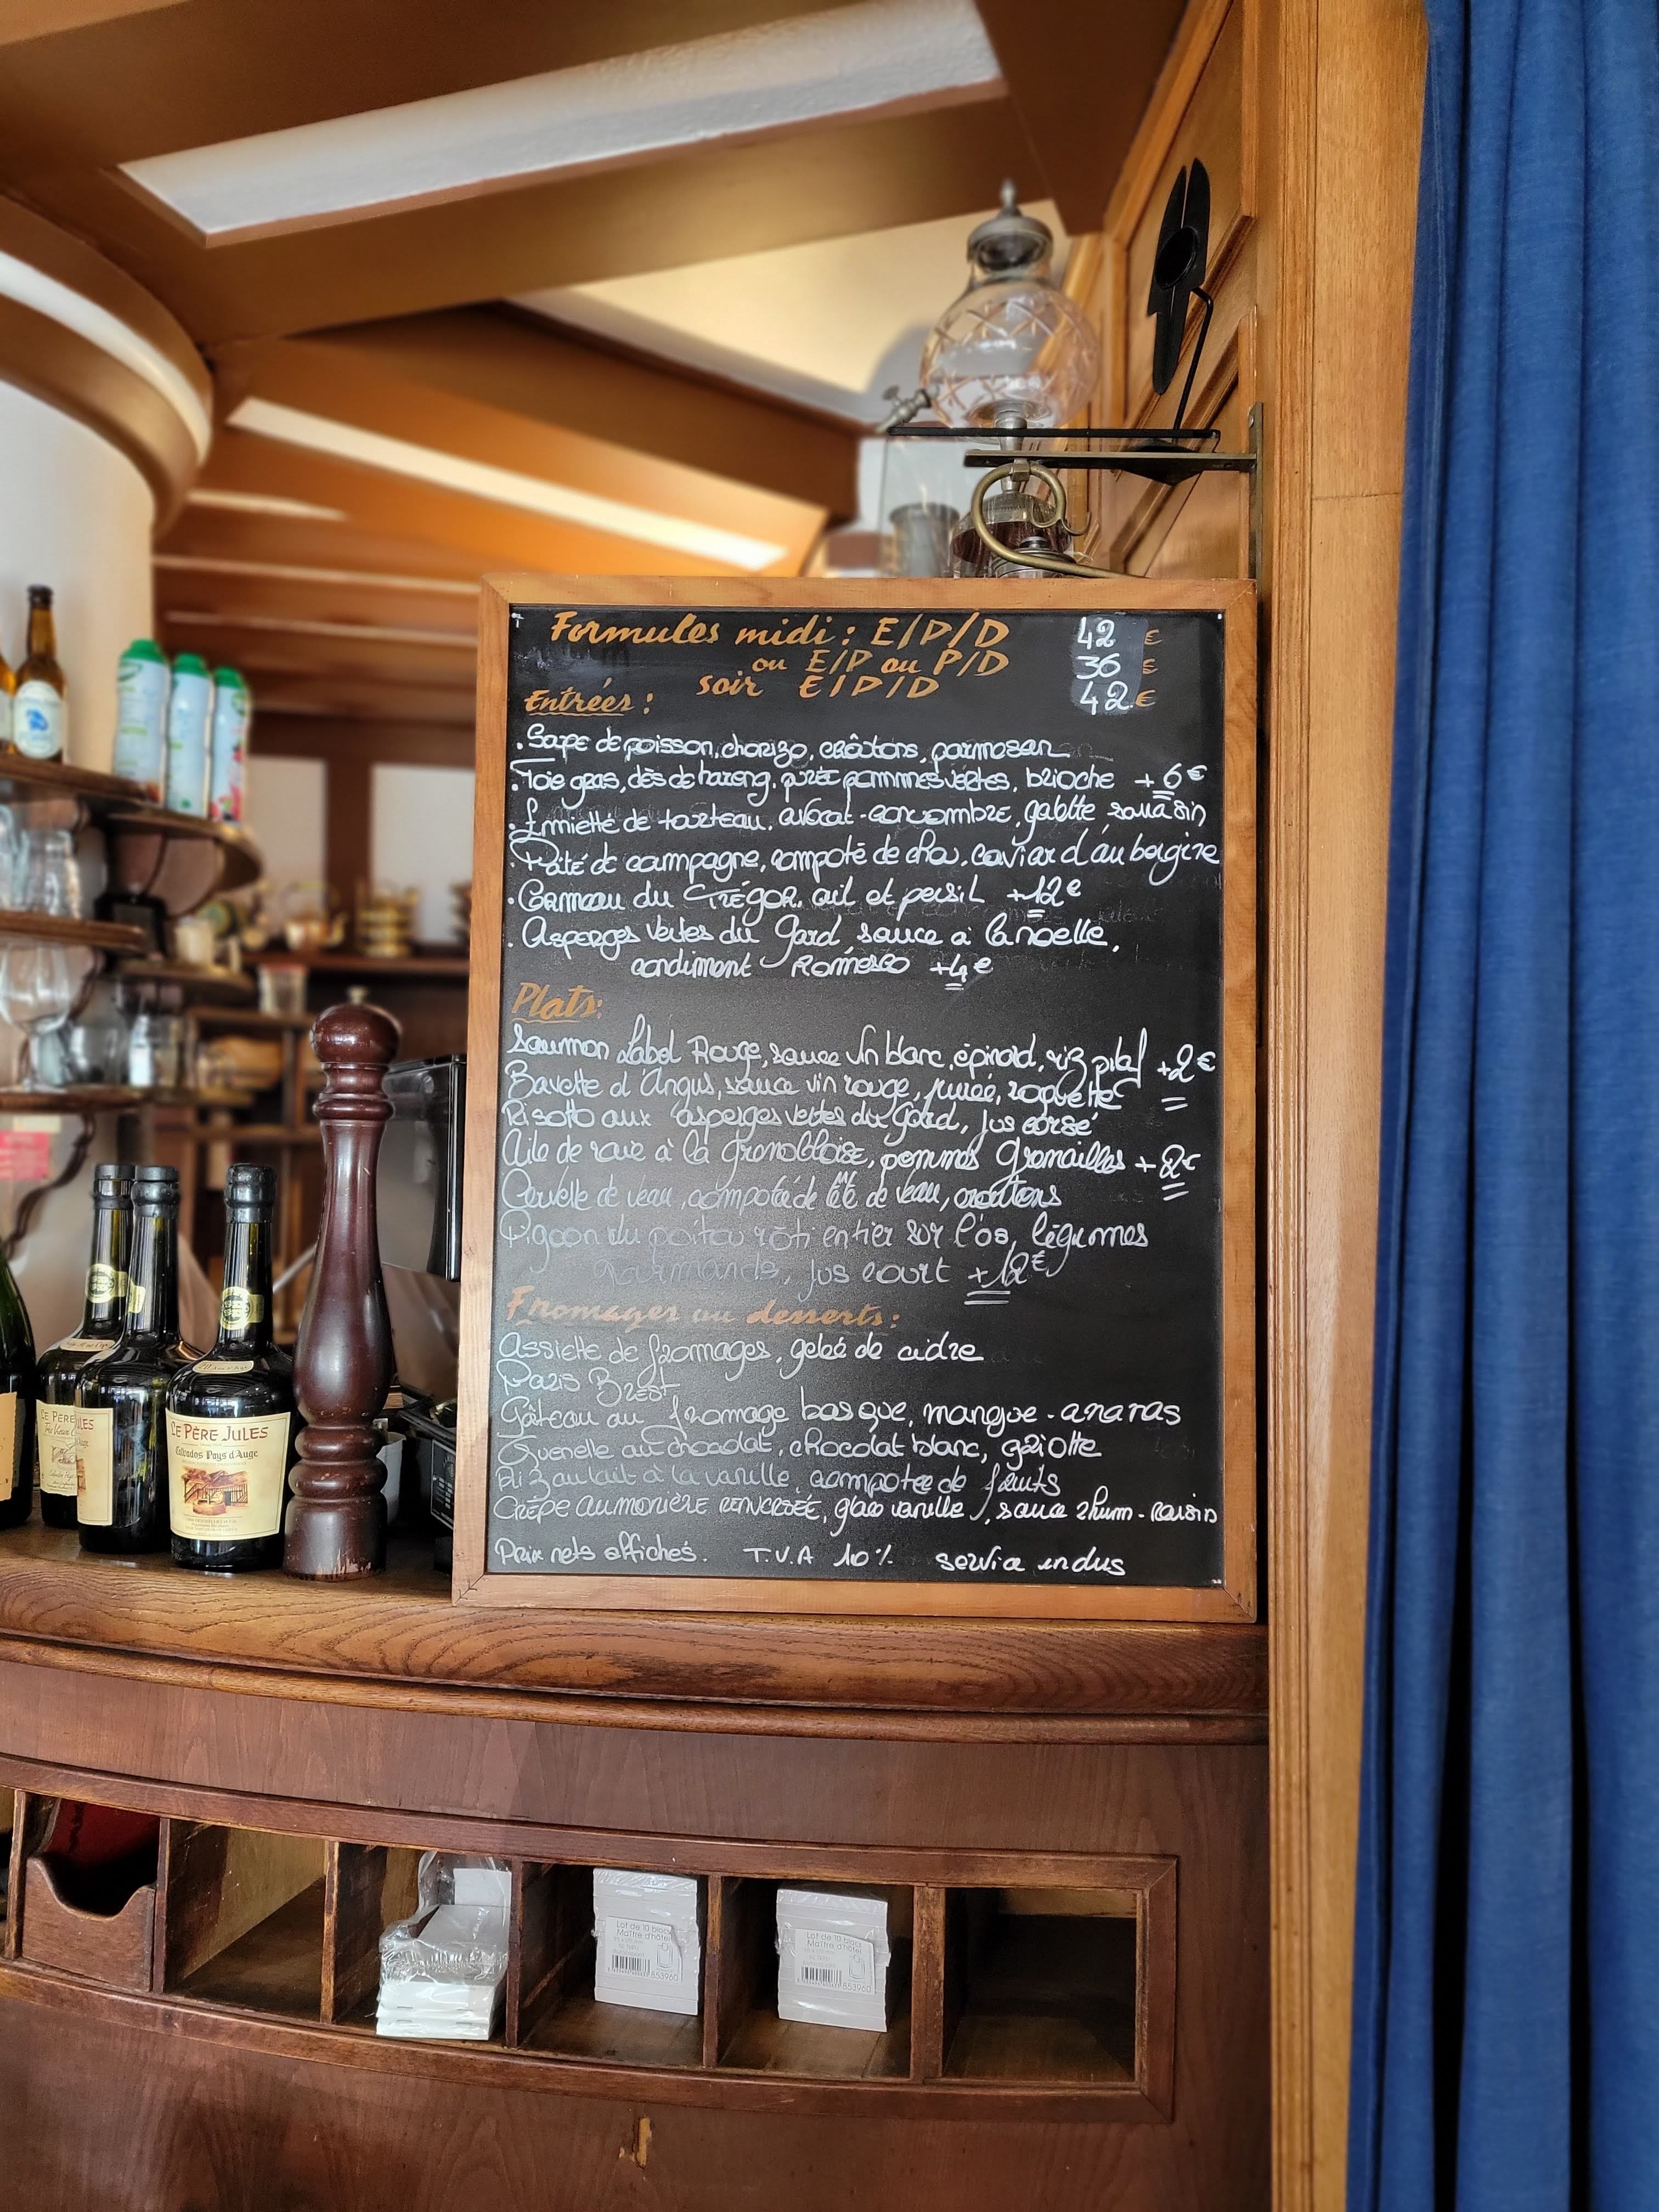 Formules midi : E/P/D 42 €
ou E/P ou P/D 36 €
soir E/P/D 42 €
Entrées :
. Soupe de poisson, chorizo, croûtons, parmesan
. Foie gras, dès de hareng, purée pommes vertes, brioche +6€
. Émietté de tourteau, avocat-concombre, galette sarrasin
. Pâté de campagne, compoté de chou, caviar d'aubergine
. Ormeau du Trégor, ail et persil +12€
. Asperges vertes du Gard, sauce à la noelle,
condiment Romesco +4€
Plats :
Saumon Label Rouge, sauce vin blanc, épinard, riz pilaf +2€
Bavette d'Angus, sauce vin rouge, purée, roquette
Risotto aux asperges vertes du Gard, jus corsé
Aile de raie à la Grenobloise, pommes Grenailles +2€
Cervelle de veau, compoté de tête de veau, croutons
Pigeon du poitou rôti entier sur l'os, légumes
gourmands, jus court +12€
Fromages ou desserts :
Assiette de fromages, gelée de cidre
Paris Brest
Gâteau au fromage basque, mangue-ananas
Quenelle au chocolat, chocolat blanc, griotte
Riz au lait à la vanille, compotée de fruits
Crêpe aumonière renversée, glace vanille, sauce rhum-raisin
Prix nets affichés. T.V.A 10% service inclus
LE PÈRE JULES
Calvados Pays d'Auge
LE PÈRE JULES
Lot de 10 blocs
Maître d'hôtel
853960
Lot de 10 blocs
Maître d'hôtel
853960